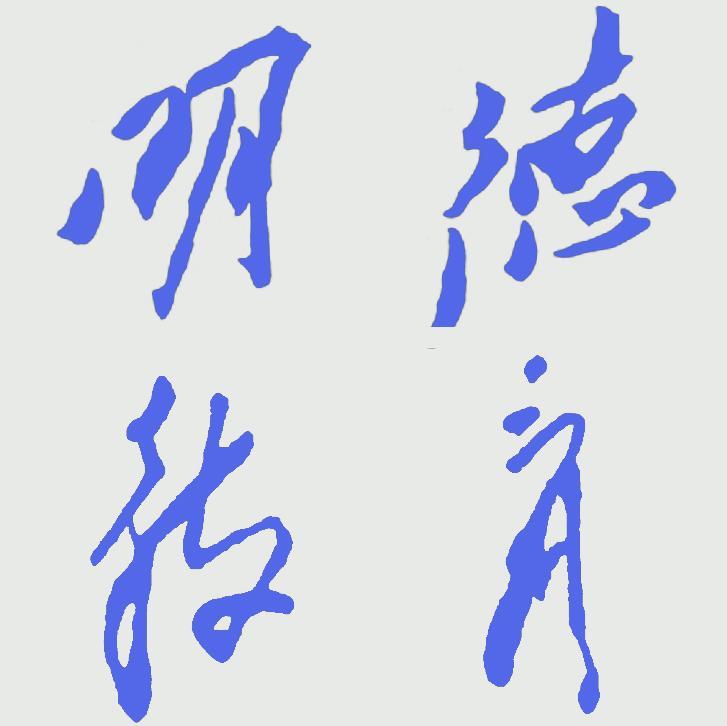 明德
教育